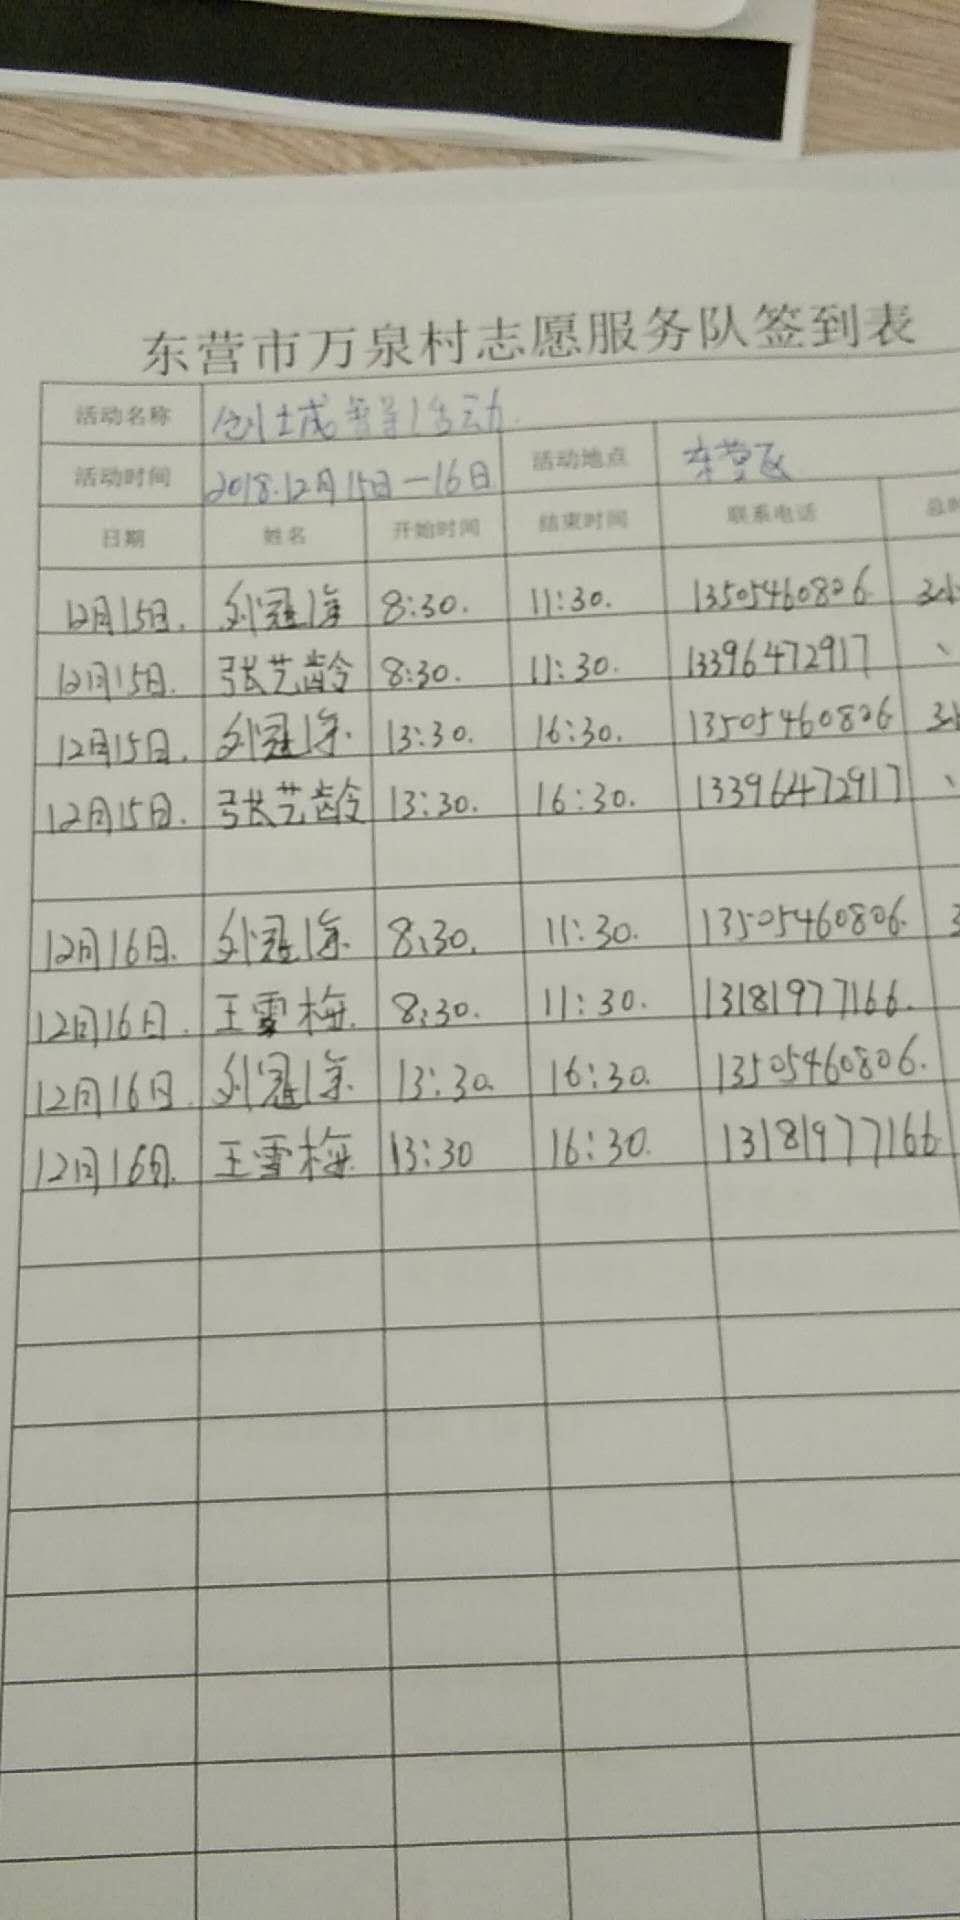 东营市万泉村志愿服务队签到表
活动名称 创城督导活动.
活动时间 2018.12月15日—16日 活动地点 东营区
日期 姓名 开始时间 结束时间 联系电话
12月15日. 刘冠 8:30. 11:30. 13505460806
12月15日. 张艺龄 8:30. 11:30. 13396472917
12月15日. 刘冠 13:30. 16:30. 13505460806
12月15日. 张艺龄 13:30. 16:30. 13396472917
12月16日. 刘冠 8:30. 11:30. 13505460806.
12月16日. 王雪梅. 8:30. 11:30. 13181977166.
12月16日. 刘冠 13:30. 16:30. 13505460806.
12月16日. 王雪梅. 13:30 16:30. 13181977166